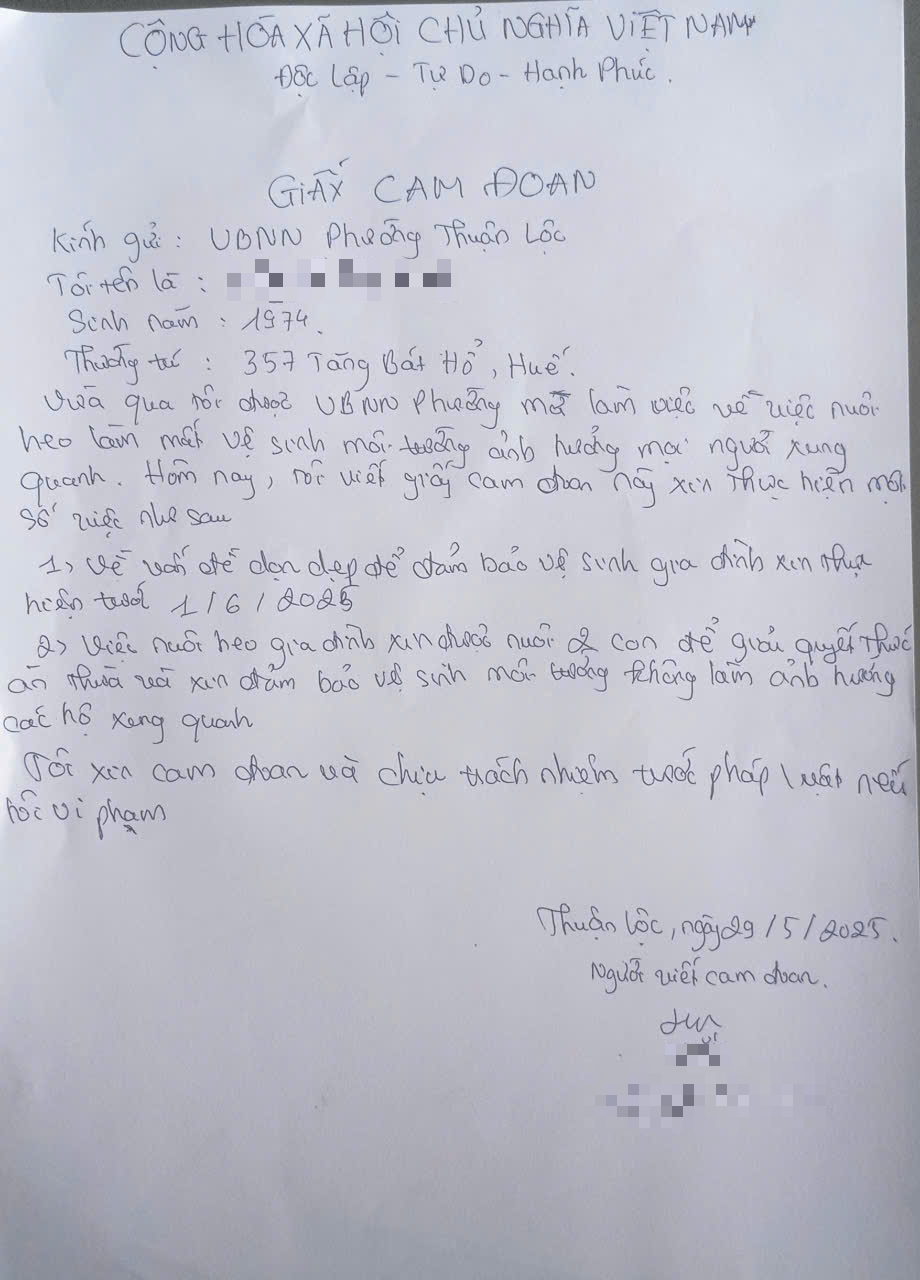 CỘNG HÒA XÃ HỘI CHỦ NGHĨA VIỆT NAM
Độc lập - Tự Do - Hạnh Phúc.
GIẤY CAM ĐOAN
Kính gửi : UBNN Phường Thuận Lộc
Tôi tên là :
Sinh năm : 1974.
Thường trú : 357 Tăng Bát Hổ, Huế.
Vừa qua tôi được UBNN Phường mời làm việc về việc nuôi
heo làm mất vệ sinh môi trường ảnh hưởng mọi người xung
quanh. Hôm nay, tôi viết giấy cam đoan này xin thực hiện một
số việc như sau
1, Về vấn đề dọn dẹp để đảm bảo vệ sinh gia đình xin thực
hiện trước 1/6/2025
2, Việc nuôi heo gia đình xin được nuôi 2 con để giải quyết thức
ăn thừa và xin đảm bảo vệ sinh môi trường không làm ảnh hưởng
các hộ xung quanh
Tôi xin cam đoan và chịu trách nhiệm trước pháp luật nếu
tôi vi phạm
Thuận Lộc, ngày 29/5/2025.
Người viết cam đoan.